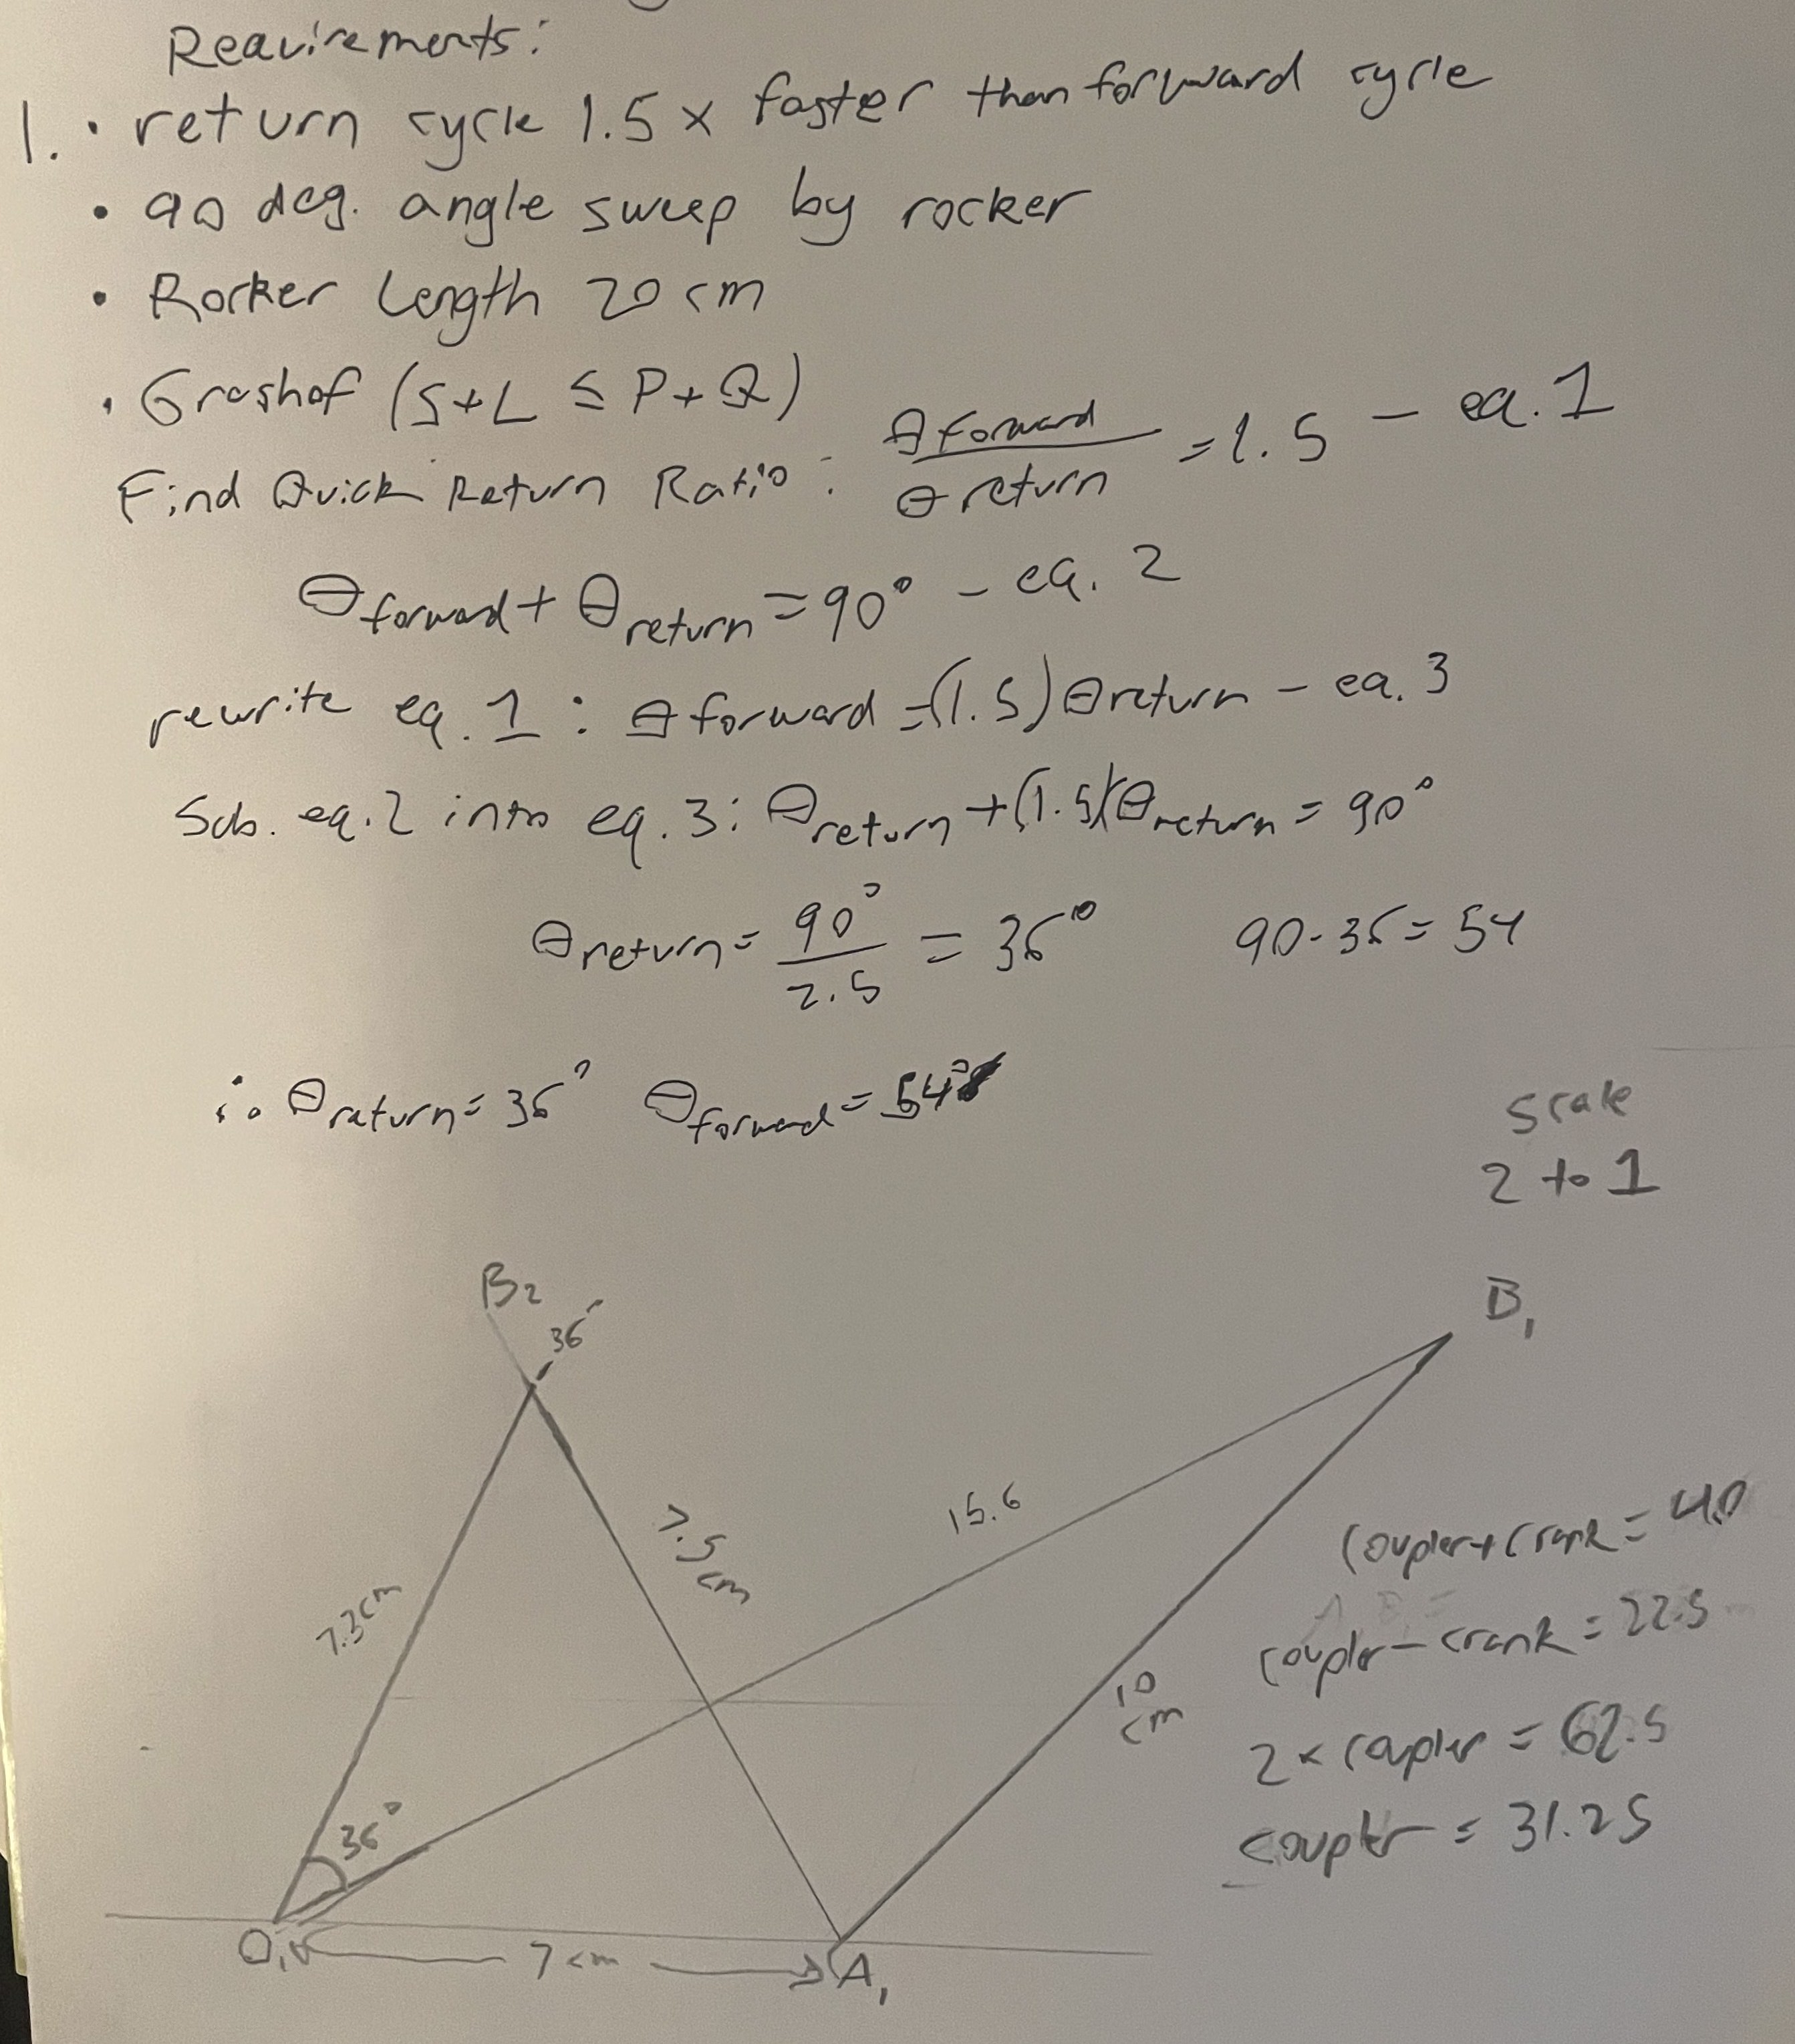 Requirements:
1. • return cycle 1.5 x faster than forward cycle
• 90 deg. angle sweep by rocker
• Rocker Length 20 cm
• Grashof (S+L ≤ P+Q)
Find Quick Return Ratio: θforward/θreturn = 1.5 – eq. 1
θforward + θreturn = 90° – eq. 2
rewrite eq. 1: θforward = (1.5)θreturn – eq. 3
Sub. eq. 2 into eq. 3: θreturn + (1.5)(θreturn = 90°
θreturn = 90°/2.5 = 36° 90-36=54
∴ θreturn = 36° θforward = 54°
Scale
2 to 1
B2
36°
B1
7.3cm
7.5 cm
15.6
10 cm
36°
O1
7 cm
A1
Coupler + Crank = 40
coupler – crank = 22.5
2 x coupler = 62.5
coupler = 31.25